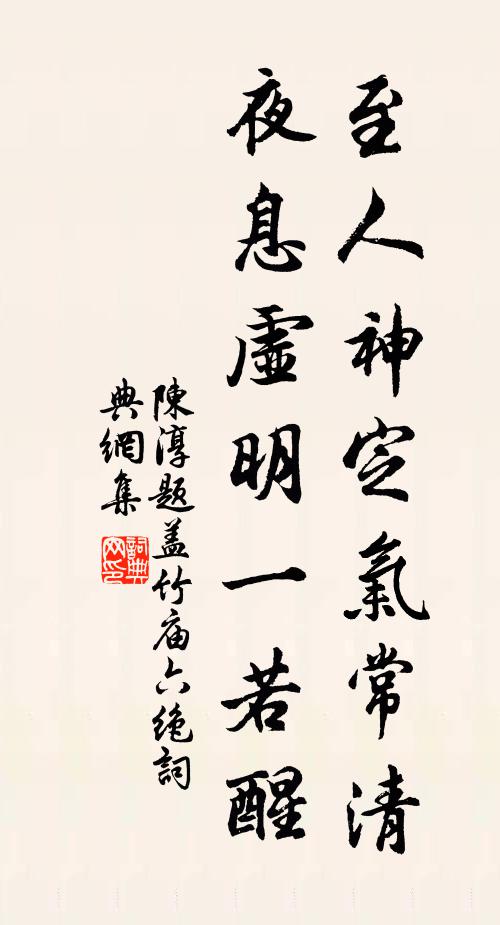 至人神定氣常清
夜息虛明一若醒
陳淳題盖竹庙六绝詞
典網集
詞典網印